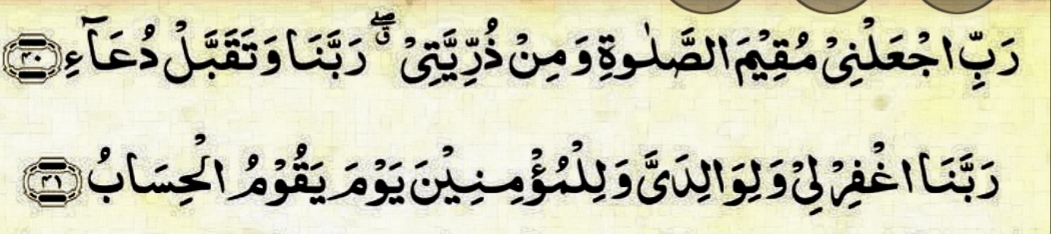 رَبِّ اجْعَلْنِیْ مُقِیْمَ الصَّلٰوةِ وَ مِنْ ذُرِّیَّتِیْ ۖۗ رَبَّنَا وَ تَقَبَّلْ دُعَآءِ ﴿۴۰﴾
رَبَّنَا اغْفِرْ لِیْ وَ لِوَالِدَیَّ وَ لِلْمُؤْمِنِیْنَ یَوْمَ یَقُوْمُ الْحِسَابُ ﴿۴۱﴾